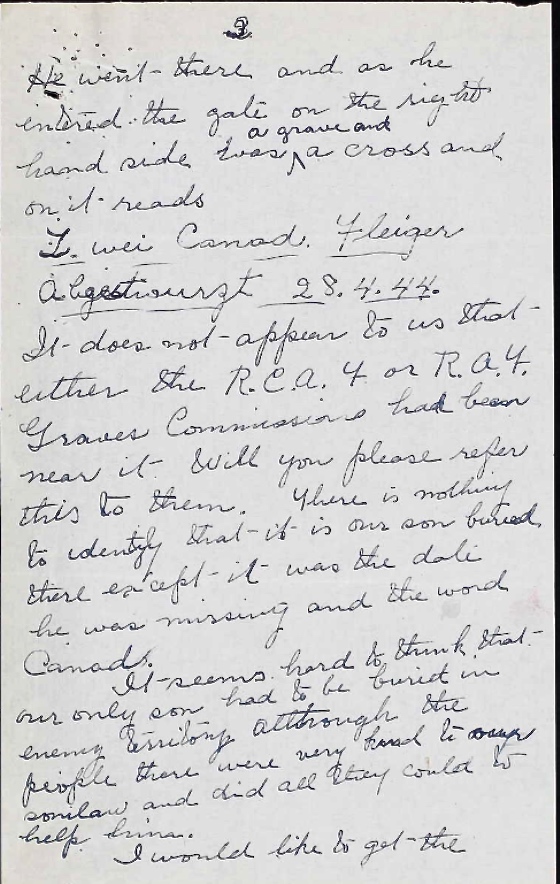 3
He went there and as he
entered the gate on the right
hand side was a grave and a cross and
on it reads
Z. wei Canad. Fleiger
Abgestourzt 28.4.44.
It does not appear to us that
either the R.C.A.F or R.A.F.
Graves Commissions had been
near it. Will you please refer
this to them. There is nothing
to identify that it is our son buried
there except it was the date
he was missing and the word
Canad.
It seems hard to think that
our only son had to be buried in
enemy territory although the
people there were very kind to our
soninlaw and did all they could to
help him.
I would like to get the